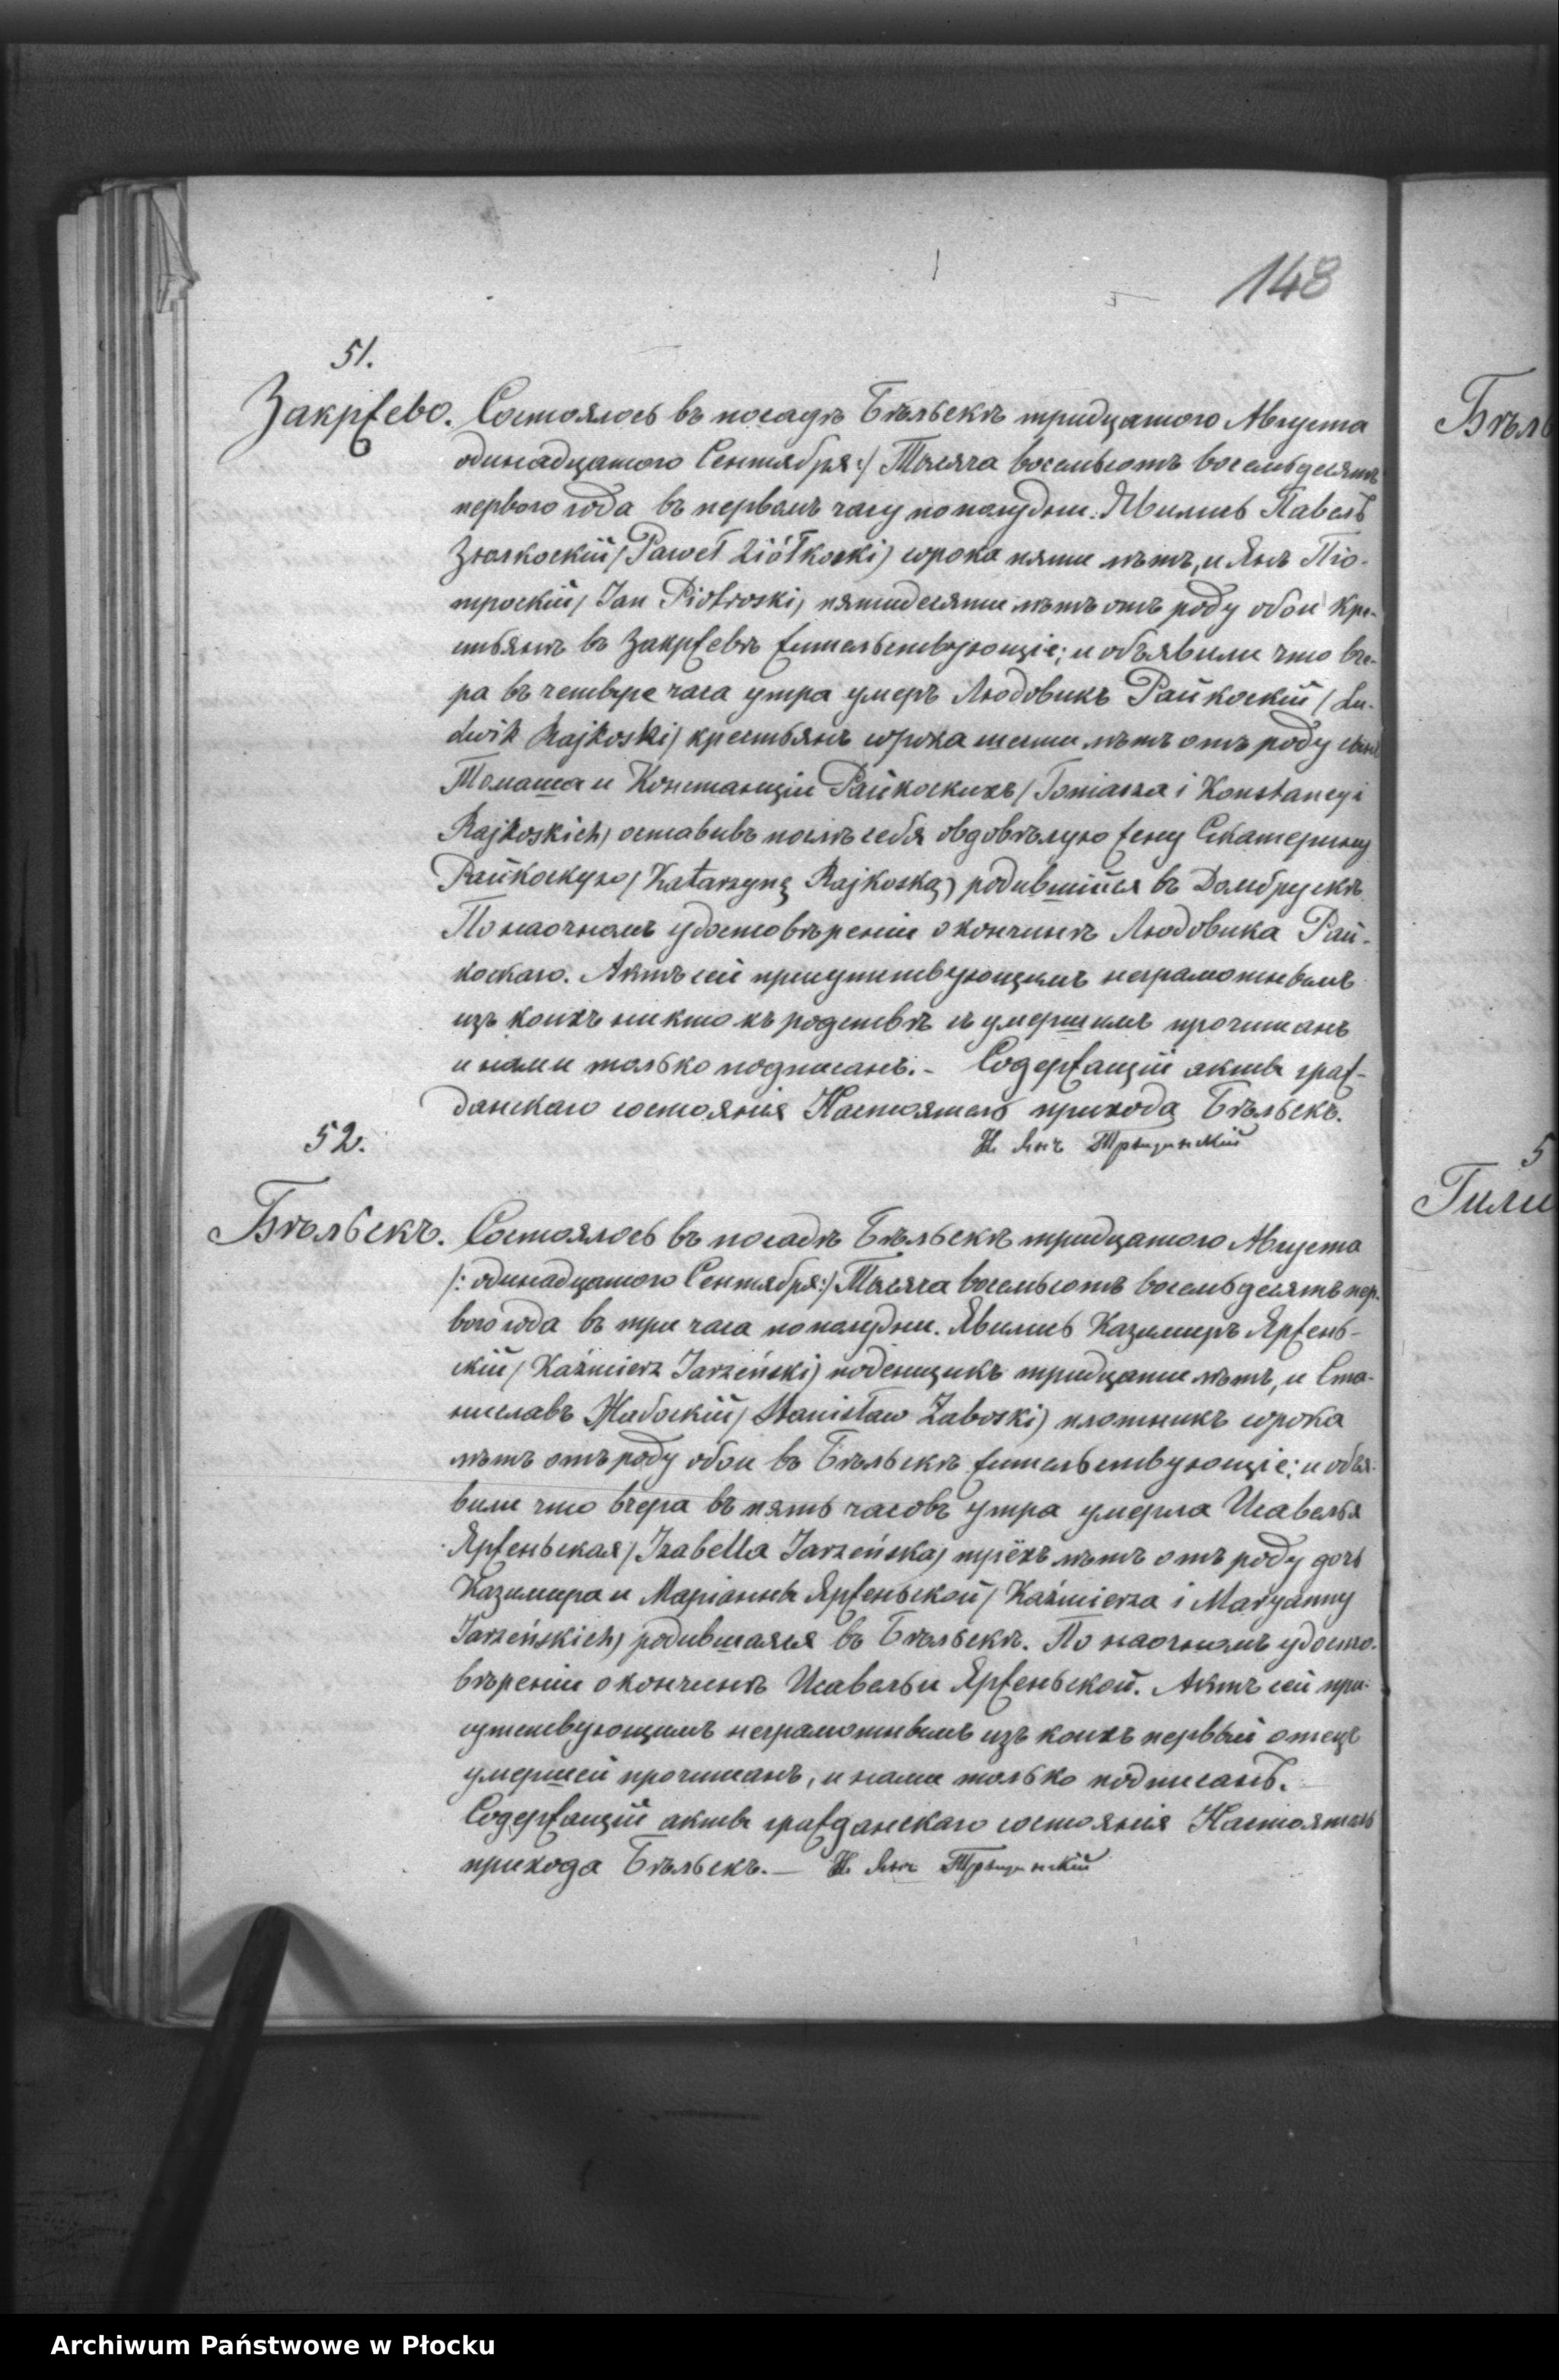 148
51.
Закржево. Состоялось въ посадѣ Бѣльскѣ тридцатого Августа
одинадцатого Сентября:/ Тысяча восемьсотъ восемьдесятъ
первого года въ первомъ часу по полудни. Явились Павелъ
Зюлкоскій / Paweł Ziółkoski) сорока пяти лѣтъ, и Янъ Піо-
троскій / Jan Piotroski) пятидесяти лѣтъ отъ роду обои кре-
стьянѣ въ Закржевѣ жительствующіе; и объявили что вче-
ра въ четвыре часа утра умеръ Людовикъ Райкоскій / Lu-
dwik Rajkoski) крестьянъ сорока шести лѣтъ отъ роду сынъ
Томаша и Констанціи Райкоскихъ / Tomasza i Konstancyi
Rajkoskich) оставивъ послѣ себя овдовѣлую жену Екатерину
Райкоскую / Katarzynę Rajkoską) родившійся въ Домбрускѣ
По наочномъ удостовѣреніи о кончинѣ Людовика Рай-
коскаго. Актъ сей присутствующимъ неграмотнымъ
изъ коихъ никто къ родствѣ съ умершимъ прочитанъ
и нами только подписанъ.- Содержащій акты граж-
данскаго состоянія Настоятель прихода Бѣльскъ.
Кс. Янъ
52.
Бѣльскъ. Состоялось въ посадѣ Бѣльскѣ тридцатого Августа
/: одинадцатого Сентября:/ Тысяча восемьсотъ восемьдесятъ пер-
вого года въ три часа по полудни. Явились Казимиръ Яржень-
скій / Kaźmierz Jarzeński) поденщикъ тридцати лѣтъ, и Ста-
ниславъ Жабоскій / Stanisław Żaboski) плотникъ сорока
лѣтъ отъ роду обои въ Бѣльскѣ жительствующіе; и объя-
вили что вчера въ пять часовъ утра умерла Исавелья
Ярженьская / Izabella Jarzeńska) трёхъ лѣтъ отъ роду дочь
Казимира и Маріанны Ярженьской / Kaźmierza i Maryanny
Jarzeńskich) родившаяся въ Бѣльскѣ. По наочномъ удосто-
вѣреніи о кончинѣ Исавельи Ярженьской. Актъ сей при-
сутствующимъ неграмотнымъ изъ коихъ первый отецъ
умершей прочитанъ, и нами только подписанъ.
Содержащій акты гражданскаго состоянія Настоятель
прихода Бѣльскъ.— Кс. Янъ
Archiwum Państwowe w Płocku